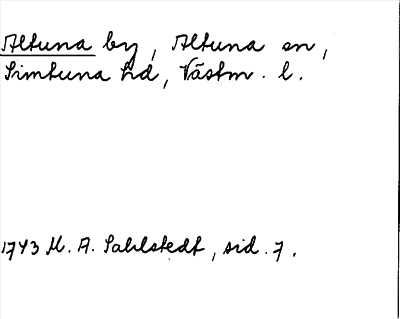 Altuna by, Altuna sn,
Simtuna hd, Västm. l.
1743 M. A. Sahlstedt, sid. 7.